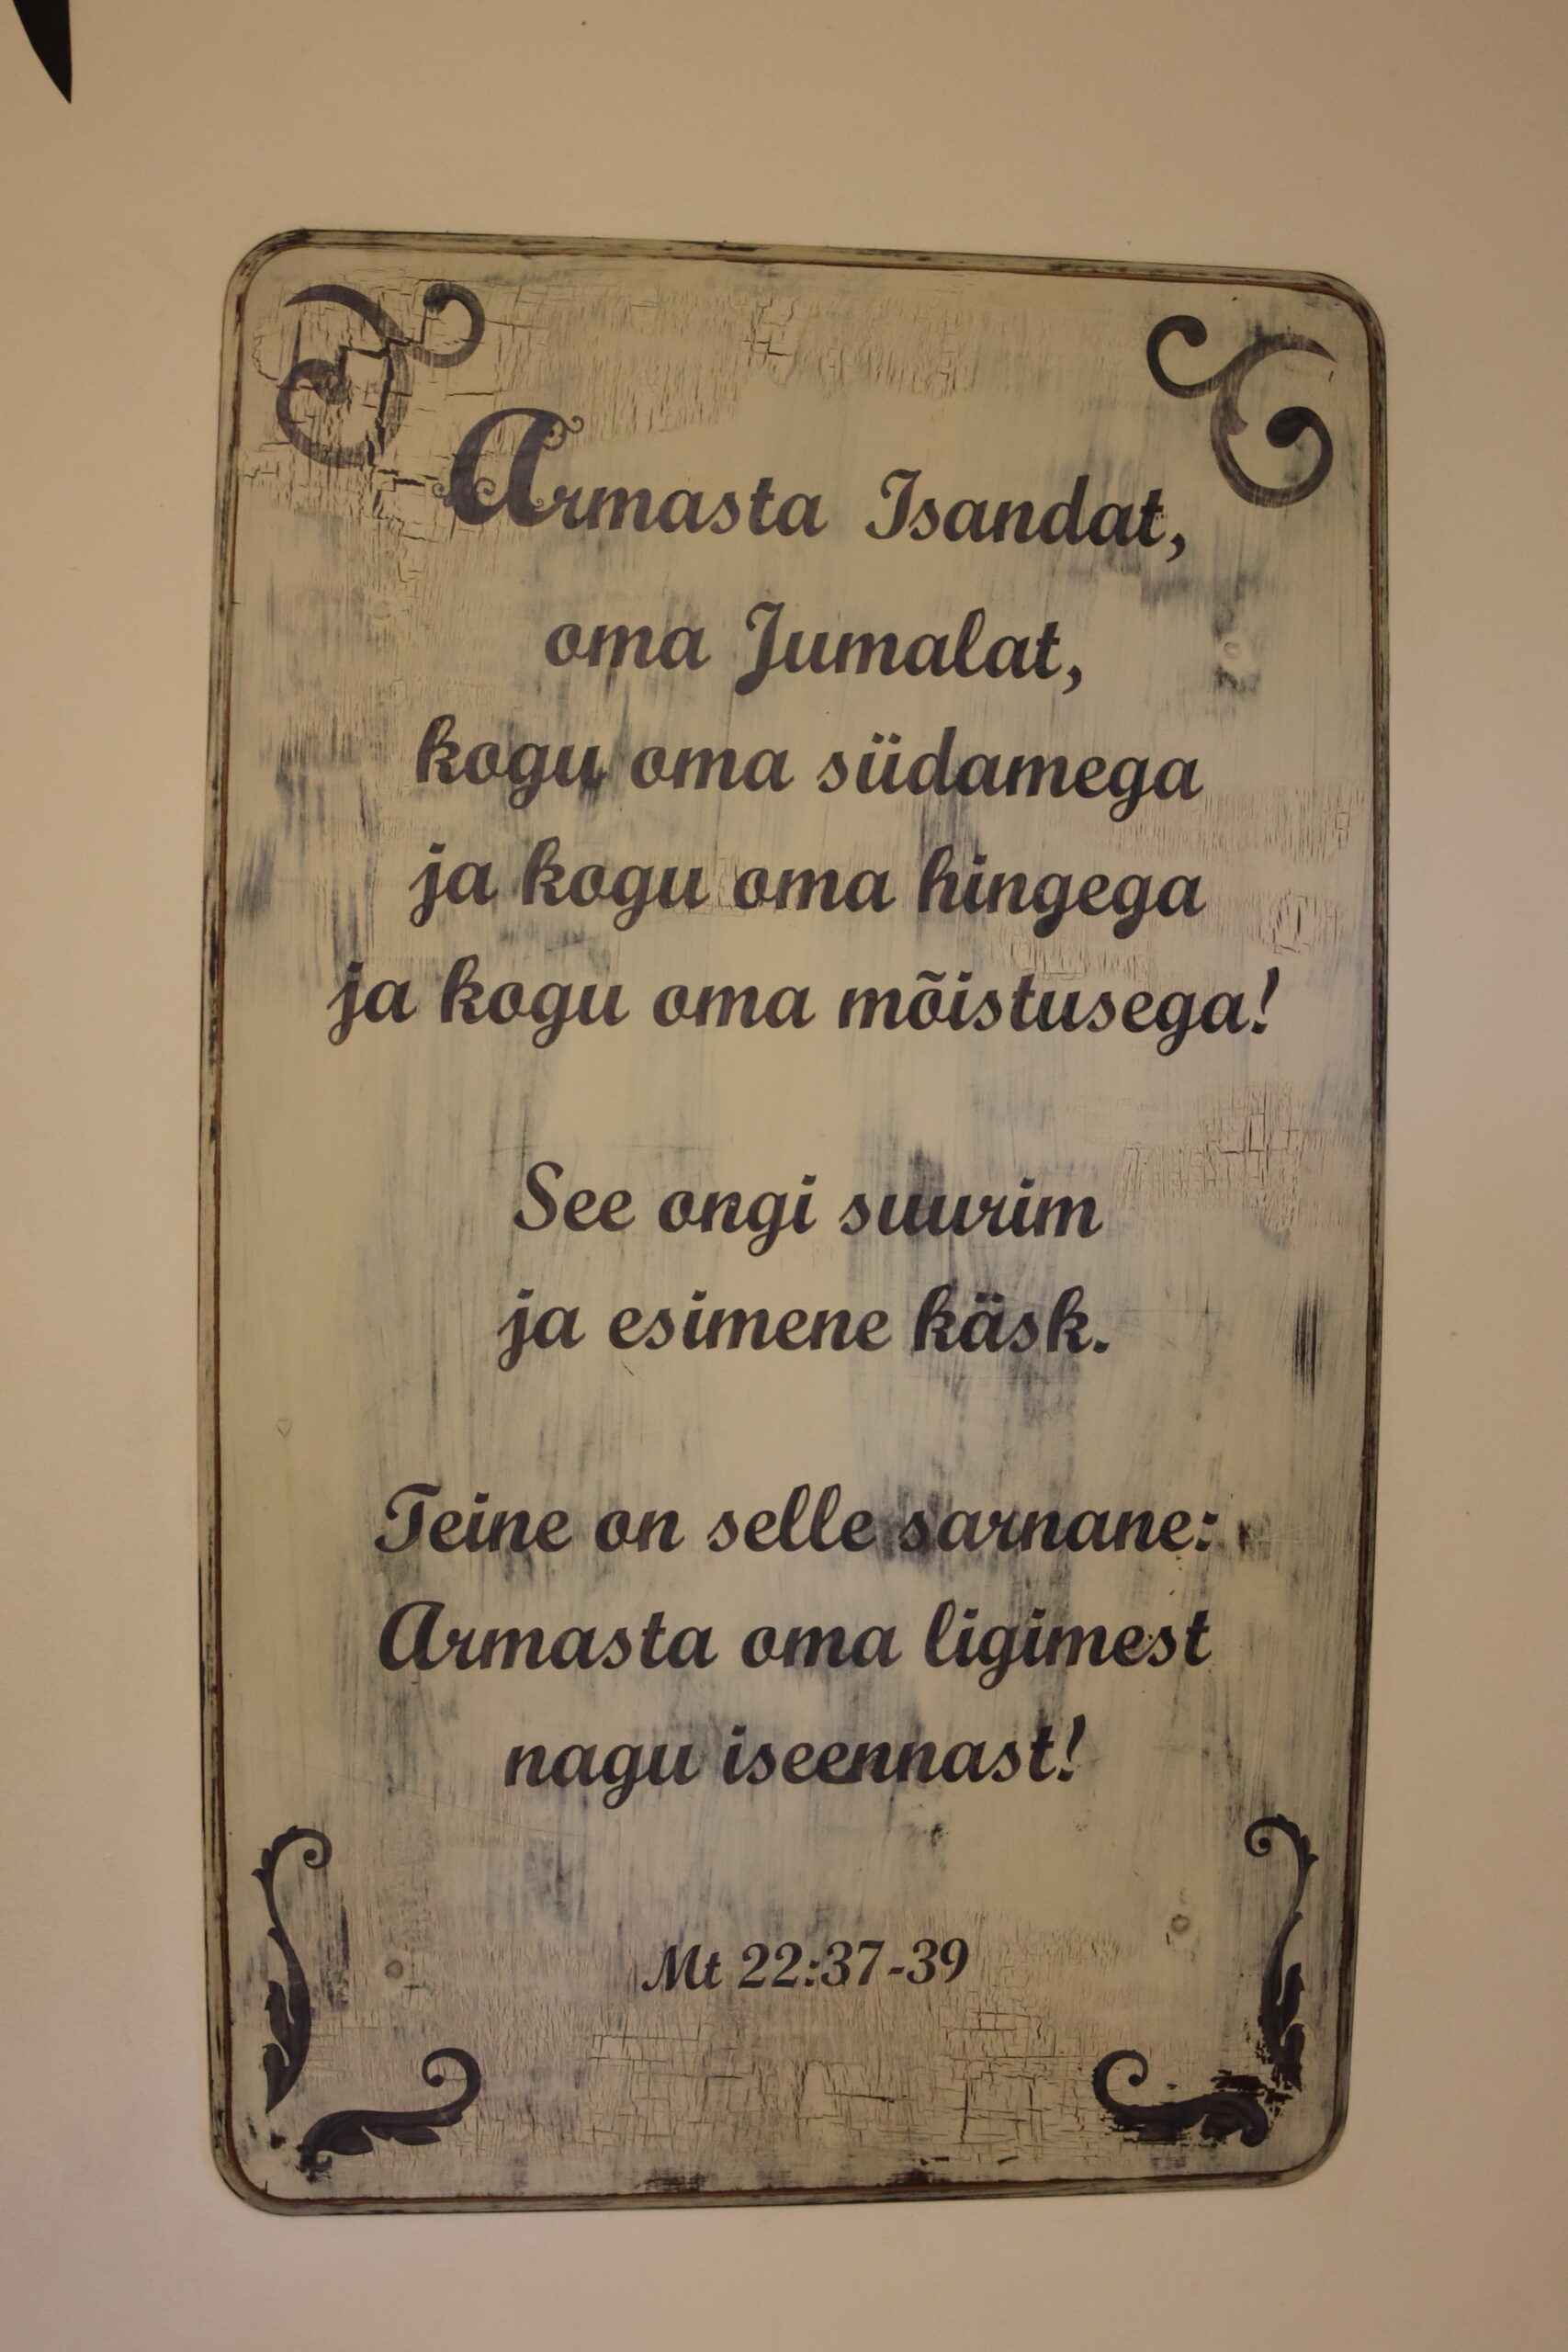 Armasta Isandat,
oma Jumalat,
kogu oma südamega
ja kogu oma hingega
ja kogu oma mõistusega!
See ongi suurim
ja esimene käsk.
Teine on selle sarnane:
Armasta oma ligimest
nagu iseennast!
Mt 22:37-39